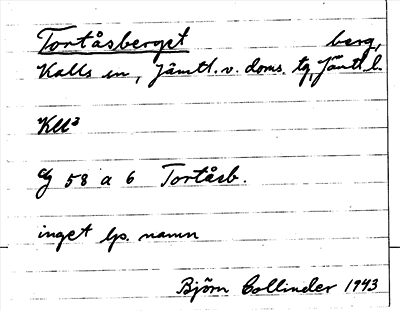 Tortåsberget berg,
Kalls sn, Jämtl. v. doms. tg, Jämtl. l.
Kll²
58 a 6 Tortåsb.
inget lp. namn
Björn Collinder 1943